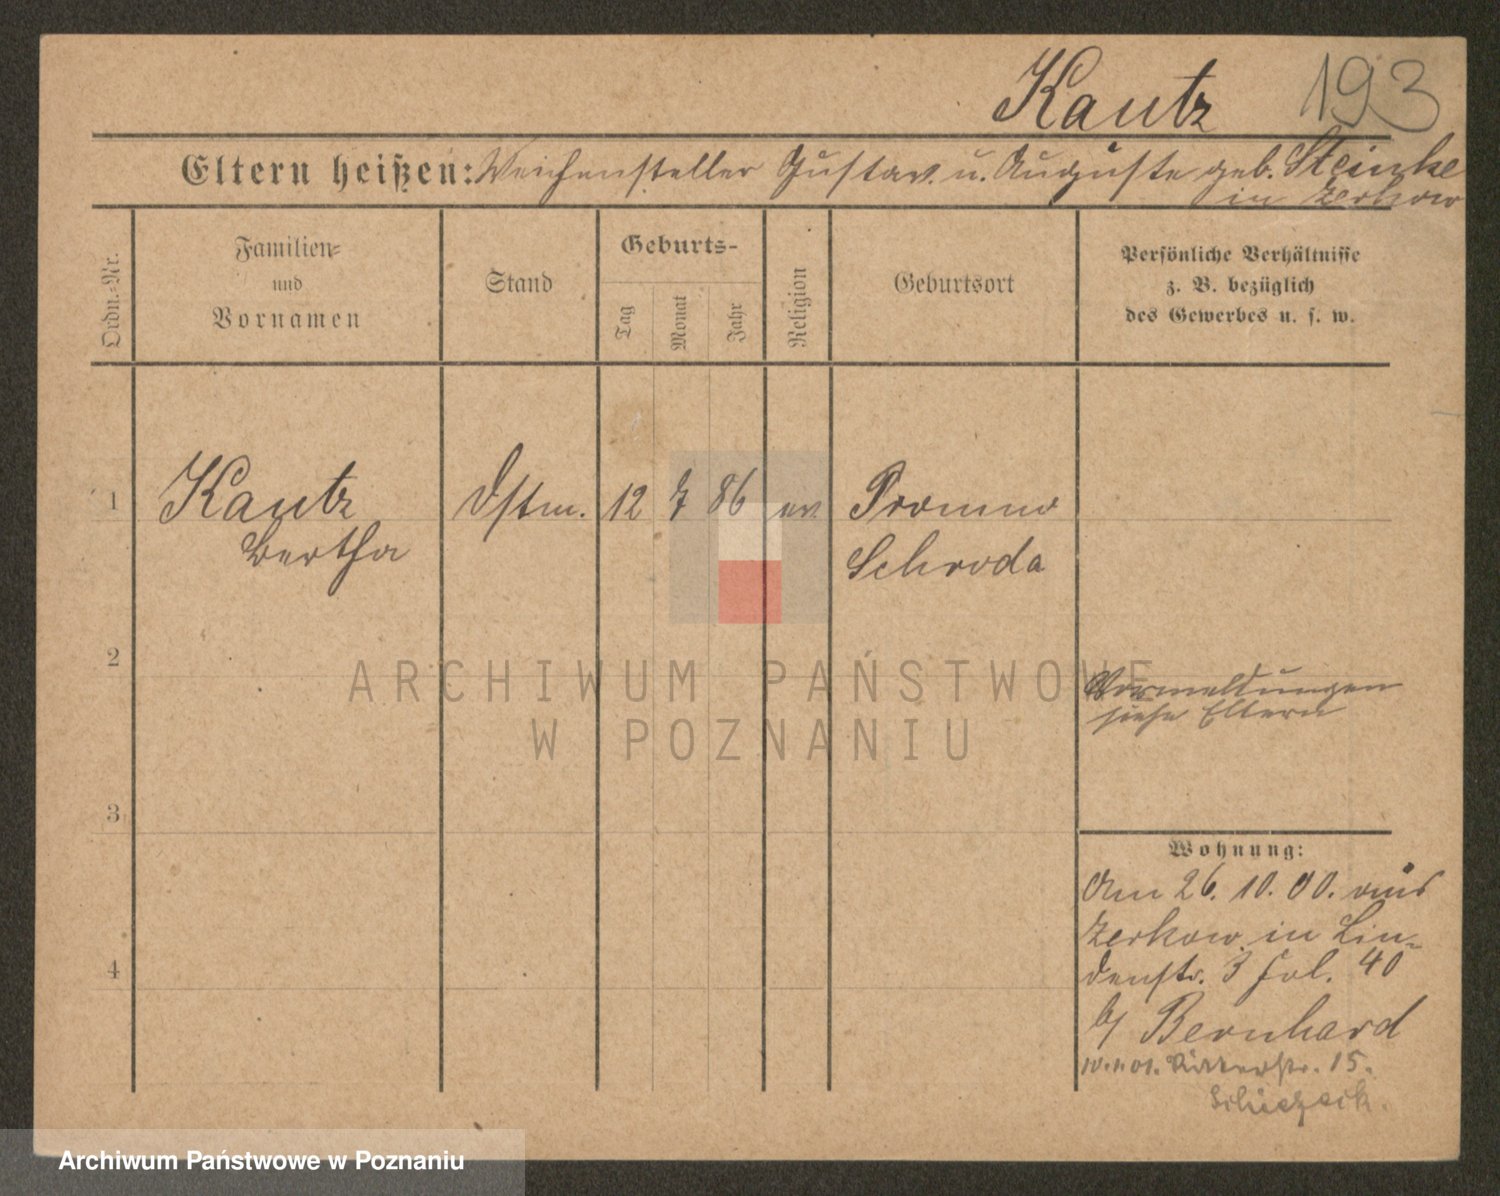 Kautz 193
Eltern heißen: Weichensteller Gustav u. Auguste geb. Steinke
in Zerkow
Ordn.-Nr.
Familien-
und
Vornamen
Stand
Geburts-
Tag
Monat
Jahr
Religion
Geburtsort
Persönliche Verhältnisse
z. B. bezüglich
des Gewerbes u. s. w.
1 Kautz Dstm. 12 7 86 ev. Promno
Bertha Schroda
2
ARCHIWUM PAŃSTWOWE
W POZNANIU
Vormeldungen
siehe Eltern
3
Wohnung:
Am 26. 10. 00. aus
Zerkow in Lin-
denstr. 3 fol. 40
b/ Bernhard
4
Ritterstr. 15.
Archiwum Państwowe w Poznaniu